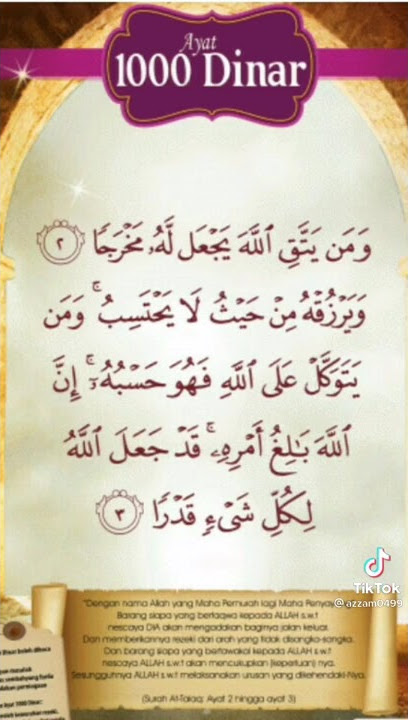 Ayat
1000 Dinar
وَمَن يَتَّقِ ٱللَّهَ يَجْعَل لَّهُۥ مَخْرَجًا ٢
وَيَرْزُقْهُ مِنْ حَيْثُ لَا يَحْتَسِبُ ۚ وَمَن
يَتَوَكَّلْ عَلَى ٱللَّهِ فَهُوَ حَسْبُهُۥٓ ۚ إِنَّ
ٱللَّهَ بَٰلِغُ أَمْرِهِۦ ۚ قَدْ جَعَلَ ٱللَّهُ
لِكُلِّ شَىْءٍ قَدْرًا ٣
TikTok
@azzam0499
"Dengan nama Allah yang Maha Pemurah lagi Maha
Barang siapa yang bertaqwa kepada ALLAH s.w.t
nescaya DIA akan mengadakan baginya jalan keluar.
Dan memberikannya rezeki dari arah yang tidak disangka-sangka.
Dan barang siapa yang bertawakal kepada ALLAH s.w.t
nescaya ALLAH s.w.t akan mencukupkan (keperluan) nya.
Sesungguhnya ALLAH s.w.t akan melaksanakan urusan yang dikehendaki-Nya.
(Surah At-Talaq: Ayat 2 hingga ayat 3)